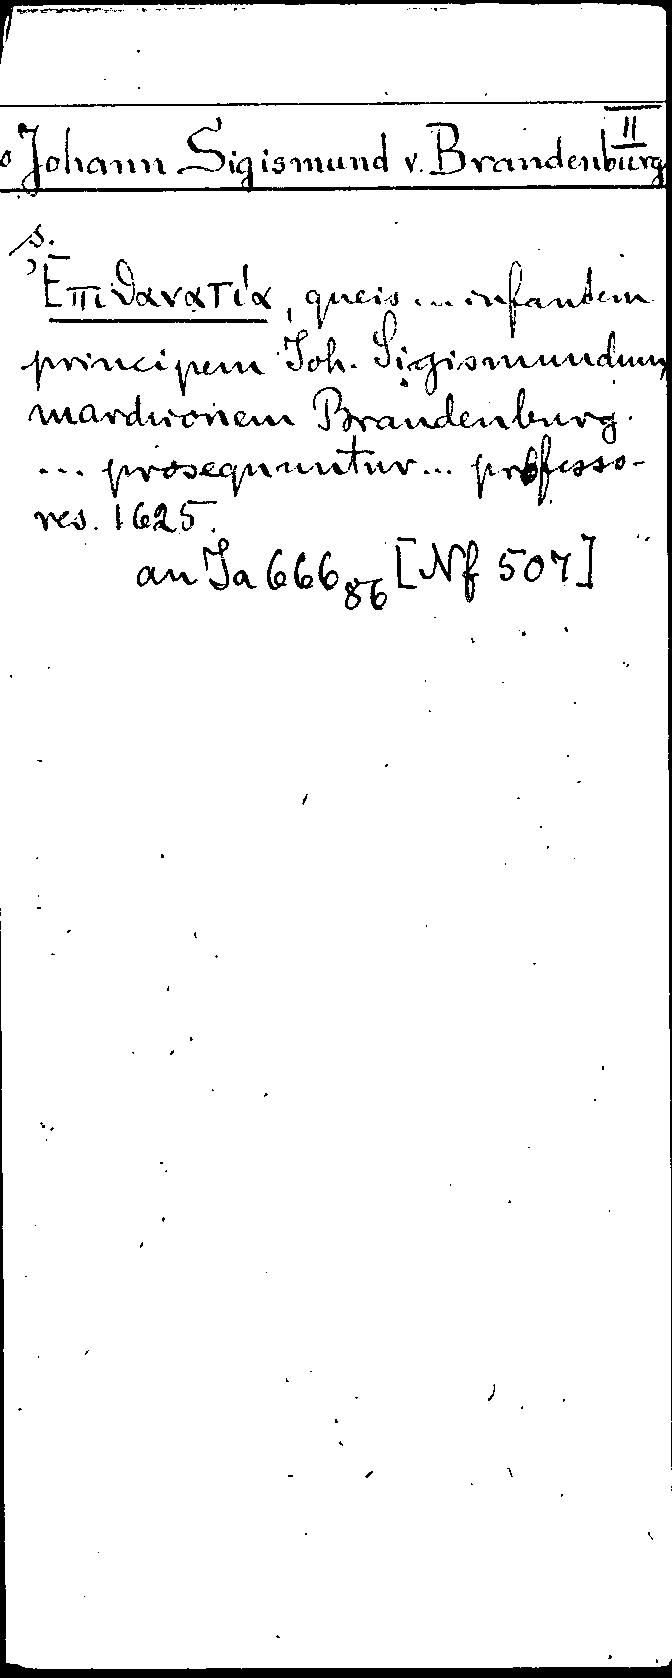 II
o Johann Sigismund v. Brandenburg
s.
Ἐπιθανατία, queis ... infantem
principem Joh. Sigismundum,
marchionem Brandenburg.
... prosequuntur... professo-
res. 1625.
an Ja 666 86 [Nf 507]